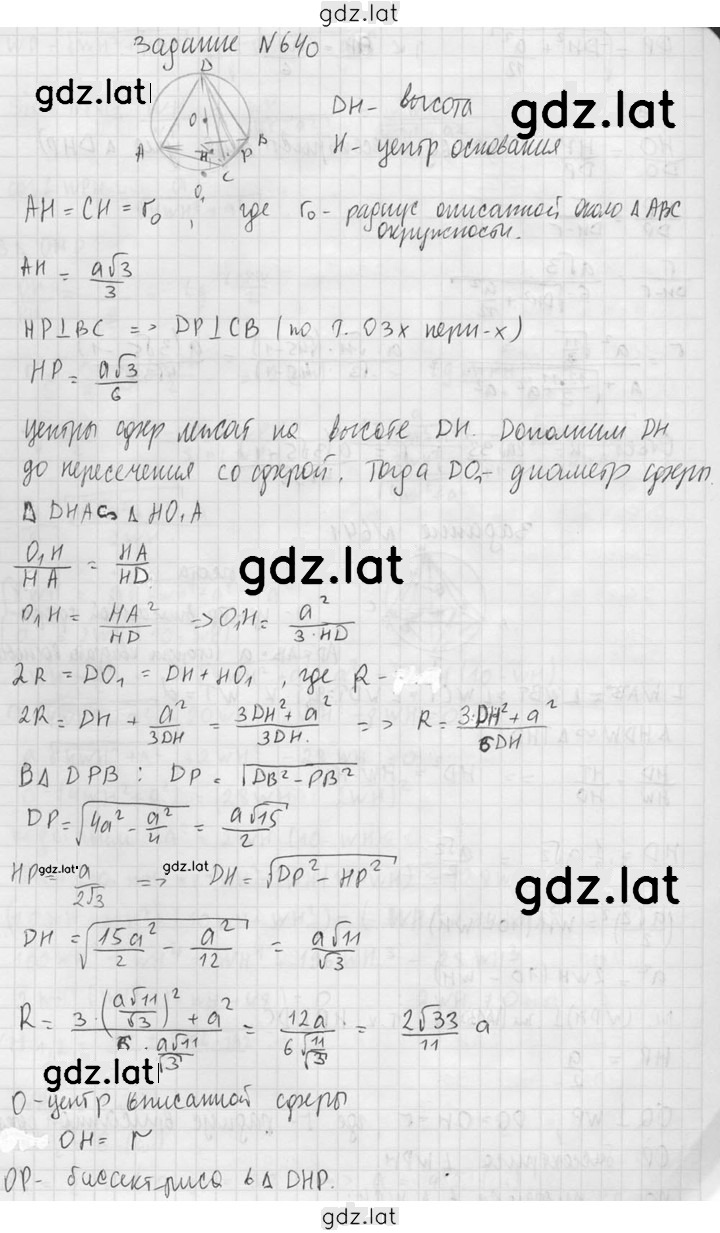 gdz.lat
Задание №640
gdz.lat
D
O
A
B
H
P
C
O₁
gdz.lat
DH- высота
H- центр основания
AH = CH = r₀, где r₀ - радиус описанной около Δ ABC
окружности.
AH = a√3/3
HP⊥BC => DP⊥CB (по т. о 3х перп-х)
HP = a√3/6
центры сфер лежат на высоте DH. Дополним DH
до пересечения со сферой. Тогда DO₁- диаметр сферы.
Δ DHA ∽ Δ HO₁A
O₁H/HA = HA/HD
gdz.lat
O₁H = HA²/HD => O₁H = a²/3·HD
2R = DO₁ = DH + HO₁, где R -
2R = DH + a²/3DH = 3DH² + a²/3DH. => R = 3·DH² + a²/6DH
В Δ DPB : DP = √DB² - PB²
DP = √4a² - a²/4 = a√15/2
HP = a/2√3 => DH = √DP² - HP²
gdz.lat
gdz.lat
gdz.lat
DH = √15a²/2 - a²/12 = a√11/√3
R = 3·(a√11/√3)² + a²/6·a√11/√3 = 12a/6√11/√3 = 2√33/11 a
gdz.lat
O - центр вписанной сферы
OH = r
OP- биссектриса в Δ DHP.
gdz.lat